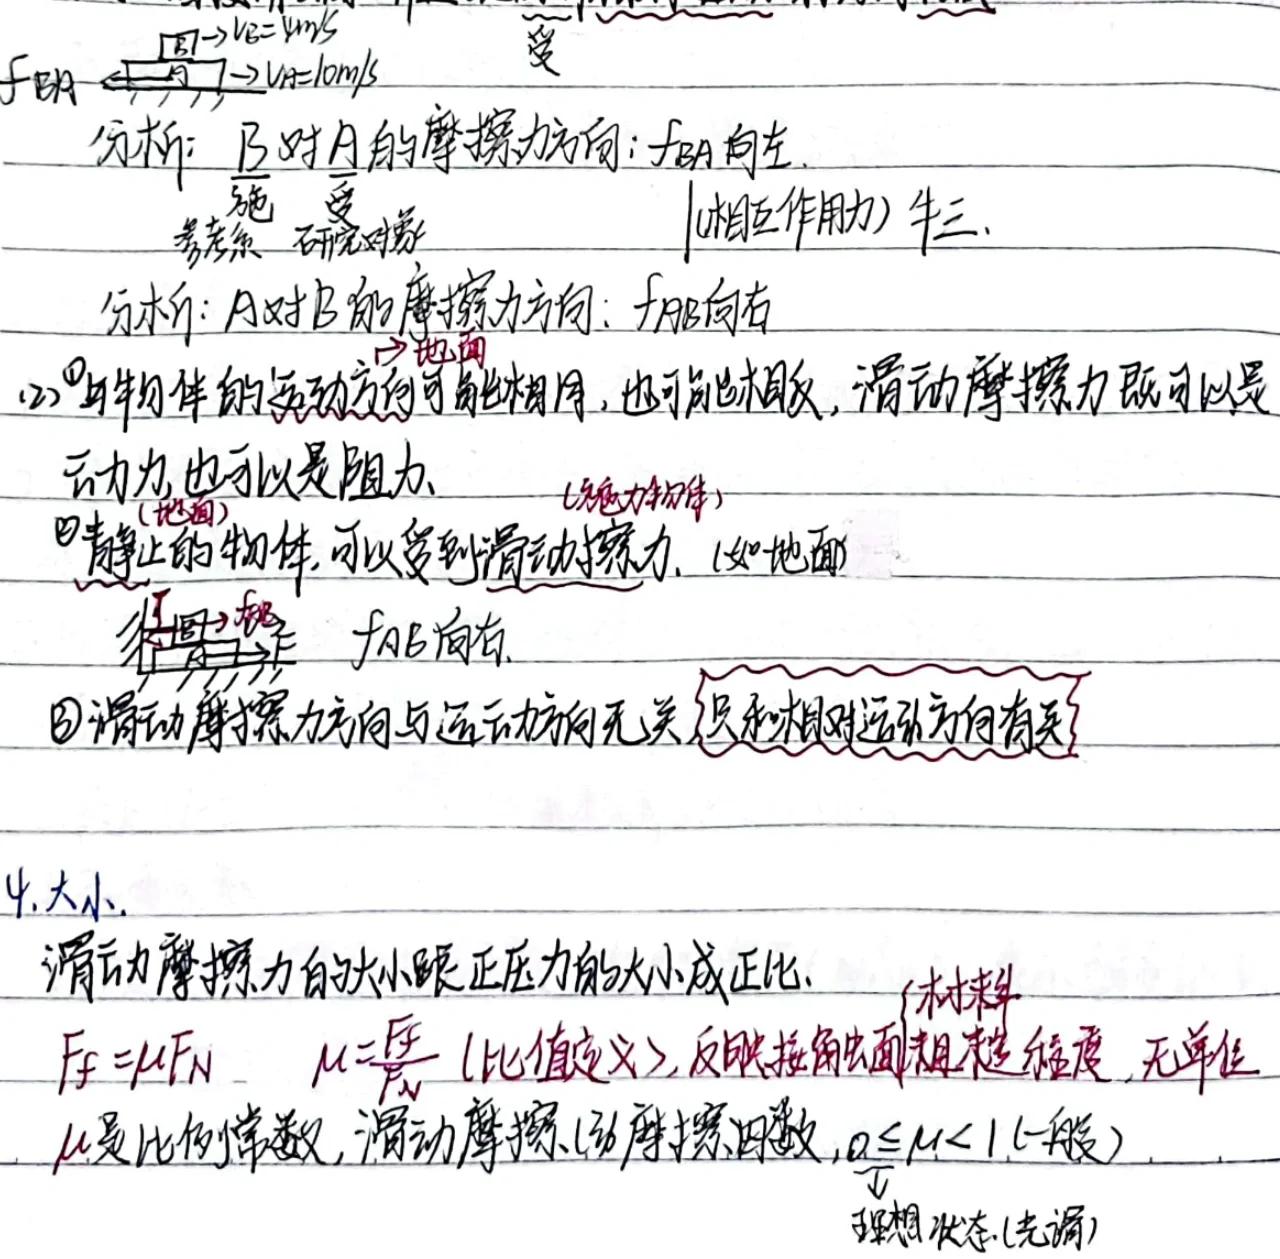 受
B→VB=4m/s
fBA A→VA=10m/s
分析: B对A的摩擦力方向: fBA向左.
施 受
参考系 研究对象 (相互作用力) 牛三.
分析: A对B的摩擦力方向: fAB向右
→地面
(2)①与物体的运动方向可能相同, 也可能相反, 滑动摩擦力既可以是
动力, 也可以是阻力、
(地面) (施力物体)
②静止的物体, 可以受到滑动擦力. (如地面)
fAB向右.
③滑动摩擦力方向与运动方向无关, 只和相对运动方向有关
4.大小.
滑动摩擦力的大小跟正压力的大小成正比.
材料
Ff=μFN μ=Ff/FN (比值定义), 反映接触面粗糙程度, 无单位
μ是比例常数, 滑动摩擦(动摩擦因数, 0≤μ<1 (一般)
理想状态.(光滑)